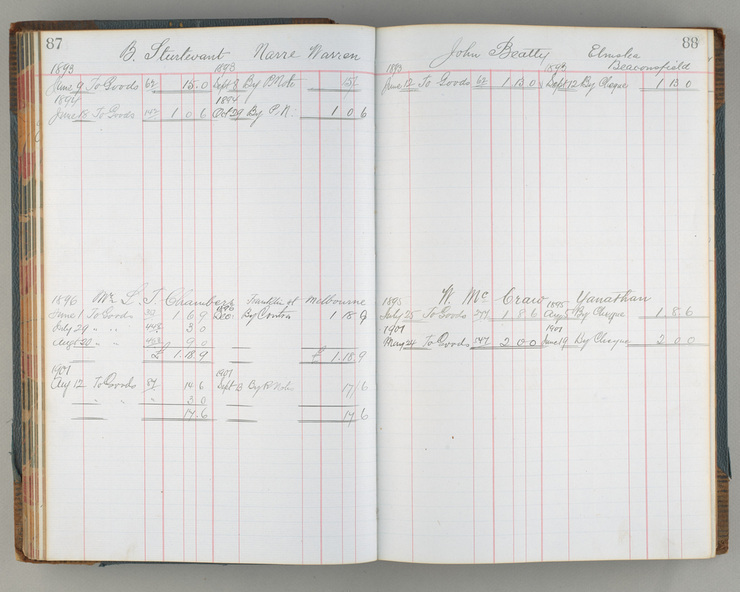 87
B. Sturtevant Narre Warren
1893 1893
June 9 To Goods 62 15 0 Sept 8 By P Note 15/-
1894 1894
June 18 To Goods 1 0 6 Oct 29 By P.N. 1 0 6
1896 Mr S. T. Chambers Franklin st Melbourne
June 1 To Goods 1 6 9 1896 Dec By Contra 1 18 9
July 29 " " 442 3 0
Aug 20 " " 9 0
£ 1.18.9 £ 1.18.9
1901 1901
Aug 12 To Goods 14 6 Sept 3 By P Note 17/6
" " " 3 0
17.6 17.6
88
John Beatty Beaconsfield
1893 1893
June 12 To Goods 62 1 13 0 Sept 12 By Cheque 1 13 0
1895 W. McCraw 1895 Yanathan
July 25 To Goods 1 8 6 Aug 5 By Cheque 1 8 6
1901 1901
May 24 To Goods 2 0 0 June 19 By Cheque 2 0 0